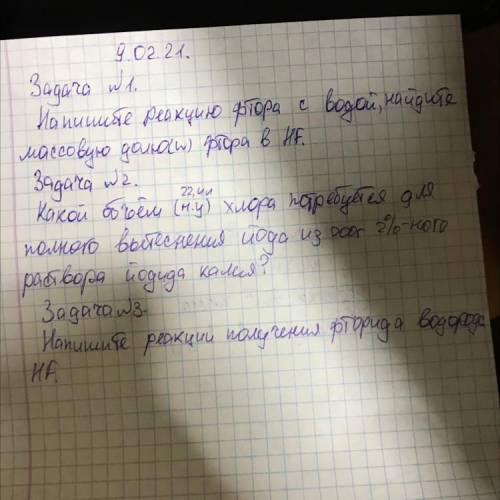 9.02.21.
Задача №1.
Напишите реакцию фтора с водой, найдите
массовую долю(w) фтора в HF.
Задача №2.
22,4л
Какой объём (н.у) хлора потребуется для
полного вытеснения йода из 2%-ного
раствора йодида калия?
Задача №3.
Напишите реакции получения фторида водорода
HF.